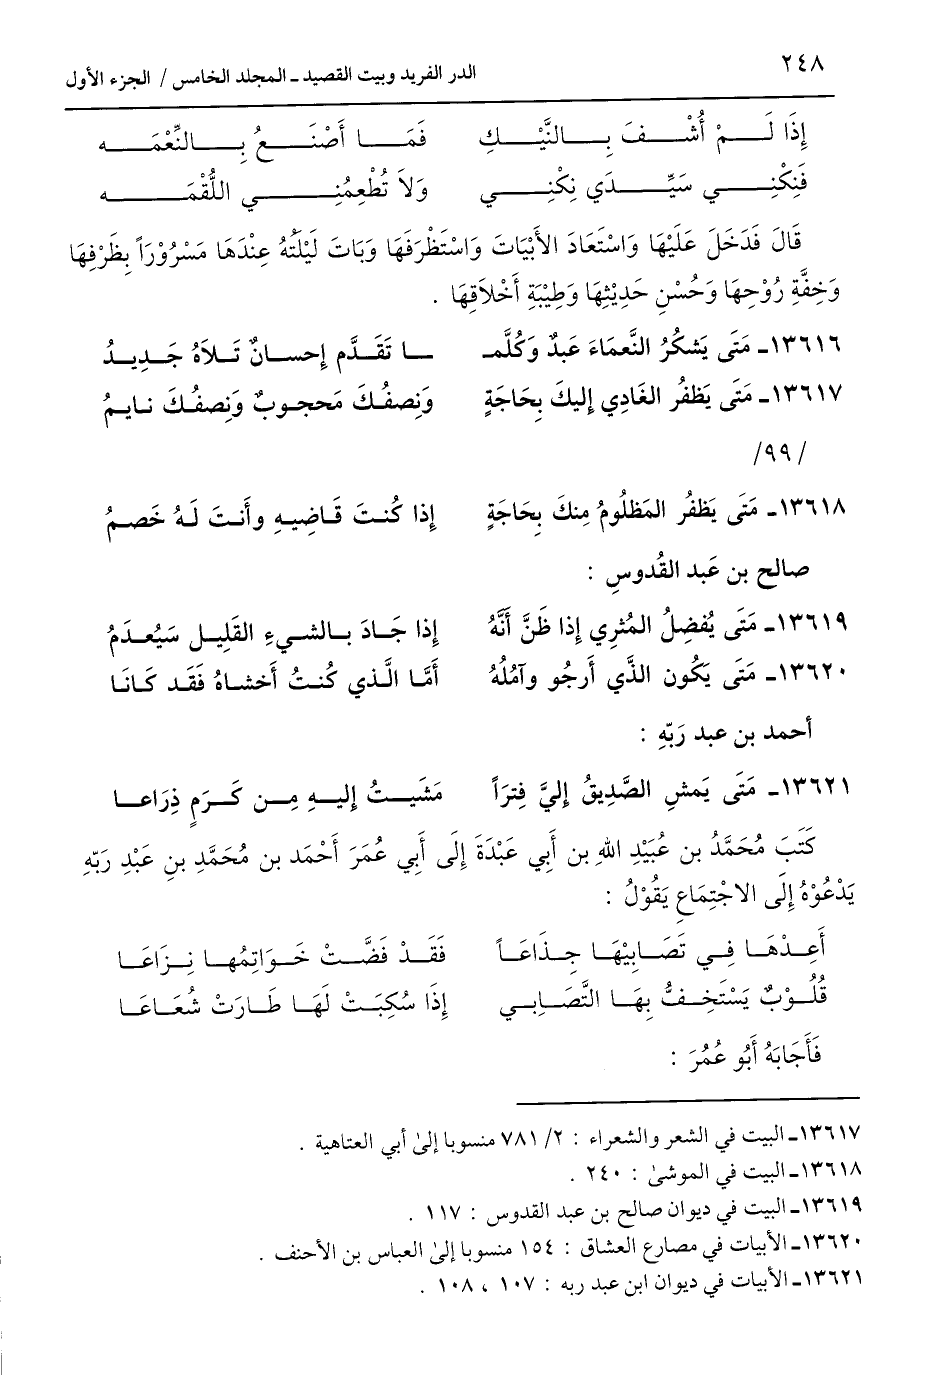 ٢٤٨
الدر الفريد وبيت القصيد ـ المجلد الخامس / الجزء الأول
إِذَا لَـــمْ أُشْـــفَ بِـــالنَّيْـــكِ فَمَـــا أَصْنَـــعُ بِـــالنِّعْمَـــه
فَنِكْنِـــي سَيِّـــدَي نِكْنِـــي وَلاَ تُطْعِمُنِـــي اللُّقْمَـــه
قَالَ فَدَخَلَ عَلَيْهَا وَاسْتَعَادَ الأَبْيَاتَ وَاسْتَظْرَفَهَا وَبَاتَ لَيْلَتُهُ عِنْدَهَا مَسْرُوْرَاً بِظَرْفِهَا
وَخِفَّةِ رُوْحِهَا وَحُسْنِ حَدِيْثِهَا وَطِيْبَةِ أَخْلَاقِهَا .
١٣٦١٦ـ مَتَى يَشكُرُ النَّعمَاءَ عَبدٌ وَكُلَّمـ ـا تَقَدَّم إِحسـانٌ تَـلاَهُ جَـدِيـدُ
١٣٦١٧ـ مَتَى يَظفرُ الغَادِي إِليكَ بِحَاجَةٍ وَنِصفُـكَ مَحجـوبٌ وَنِصفُـكَ نـايـمُ
/٩٩/
١٣٦١٨ـ مَتَى يَظفُر المَظلُومُ مِنكَ بِحَاجَةٍ إِذا كُنـتَ قَـاضِيـهِ وأَنـتَ لَـهُ خَصـمُ
صالح بن عَبد القُدوسِ :
١٣٦١٩ـ مَتَى يُفضِلُ المُثرِي إِذا ظَنَّ أَنَّهُ إِذا جَـادَ بـالشـيءِ القَليـلِ سَيُعـدَمُ
١٣٦٢٠ـ مَتَى يَكُون الذَّي أَرجُو وآمُلُهُ أَمَّا الَّـذي كُنـتُ أَخشـاهُ فَقَـد كَـانَـا
أحمد بن عبد رَبّهِ :
١٣٦٢١ـ مَتَى يَمشِ الصَّدِيقُ إِليَّ فِترَاً مَشَيـتُ إِليـهِ مِـن كَـرَمٍ ذِرَاعـا
كَتَبَ مُحَمَّدُ بن عُبَيْدِ اللهِ بن أَبِي عَبْدَةَ إِلَى أَبِي عُمَرَ أَحْمَد بن مُحَمَّدِ بنِ عَبْدِ رَبِّهِ
يَدْعُوْهُ إِلَى الاجْتِمَاعِ يَقُوْلُ :
أَعِـدْهَـا فِـي تَصَـابِيْهَـا جِـذَاعَـاً فَقَـدْ فَضَّـتْ خَـوَاتِمُهـا نِـزَاعَـا
قُلُـوْبٌ يَسْتَخِـفُّ بِهَـا التَّصَـابِـي إِذَا سُكِبَـتْ لَهَـا طَـارَتْ شُعَـاعَـا
فَأَجَابَهُ أَبُو عُمُرَ :
١٣٦١٧ـ البيت في الشعر والشعراء : ٢/ ٧٨١ منسوبا إلىٰ أبي العتاهية .
١٣٦١٨ـ البيت في الموشىٰ : ٢٤٠ .
١٣٦١٩ـ البيت في ديوان صالح بن عبد القدوس : ١١٧ .
١٣٦٢٠ـ الأبيات في مصارع العشاق : ١٥٤ منسوبا إلىٰ العباس بن الأحنف .
١٣٦٢١ـ الأبيات في ديوان ابن عبد ربه : ١٠٧ ، ١٠٨ .